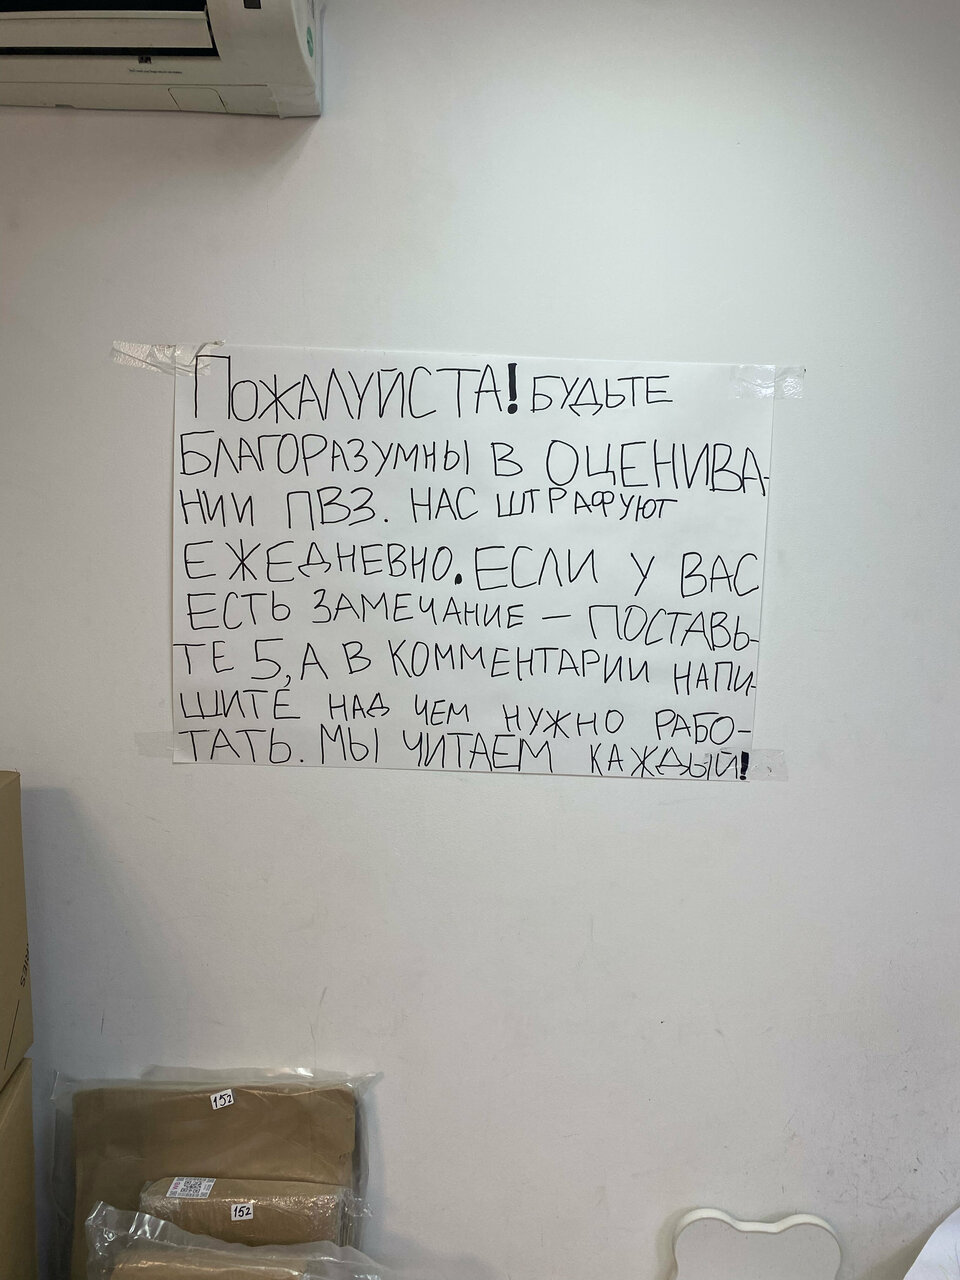 ПОЖАЛУЙСТА! БУДЬТЕ
БЛАГОРАЗУМНЫ В ОЦЕНИВА-
НИИ ПВЗ. НАС ШТРАФУЮТ
ЕЖЕДНЕВНО. ЕСЛИ У ВАС
ЕСТЬ ЗАМЕЧАНИЕ – ПОСТАВЬ-
ТЕ 5, А В КОММЕНТАРИИ НАПИ-
ШИТЕ НАД ЧЕМ НУЖНО РАБО-
ТАТЬ. МЫ ЧИТАЕМ КАЖДЫЙ!
152
152